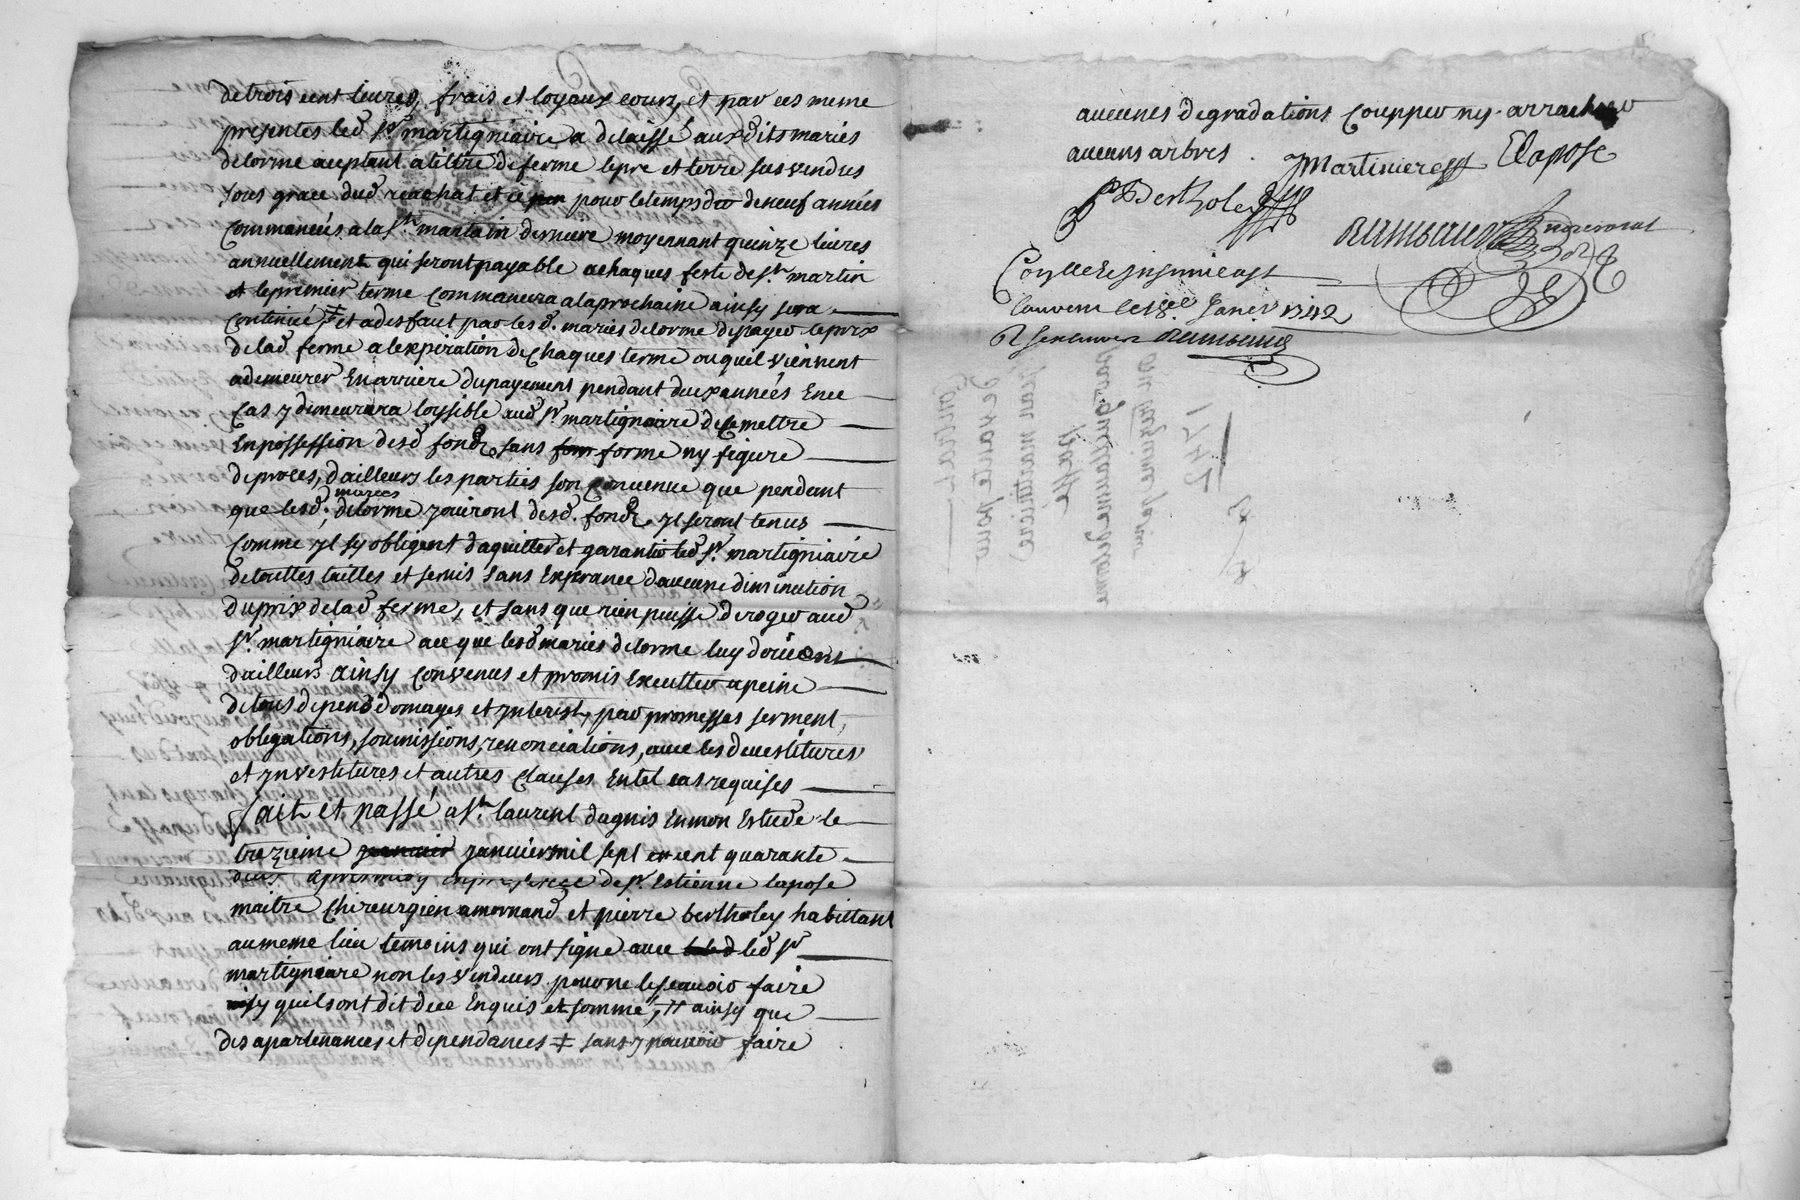 de trois cent livres, frais et loyaux cours, et par ces meme
presentes led sr martigniaire a delaissé auxdits mariés
delorme aceptant a tittre de ferme le pré et terre sus vendus
sous grace dud reachat et ce pour le temps de neuf années
commancées a la st martain derniere moyennant quinze livres
annuellement qui seront payable achaques feste de st martin
et le premier terme commancera a la prochaine ainsy sera
continué ‡ et a desfaut par les d. mariés delorme de payer le prix
de lad ferme a lexpiration de chaques terme ou quil viennent
a demeurer en arriere du payement pendant deux années en ce
cas y demeurara loysible aud sr martigniaire de se mettre
en possession desd fondz sans forme ny figure
de proces, d'ailleurs les parties son convenue que pendant
que lesd. mariés delorme jouiront desd. fondz, yl seront tenus
comme yl sy obligent daquitter et garantir led sr. martigniaire
de touttes tailles et servis sans esperance daucune diminution
du prix de lad ferme, et sans que rien puisse deroger aud
sr. martigniaire a ce que lesd mariés delorme luy doivent
d'ailleurs ainsy convenus et promis executter a peine
de tous depens domages et ynterist, par promesses serment,
obligations, soumissions, renonciations, avec les devestitures
et ynvestitures et autres clauses en tel cas requises
fait et passé a st. laurent dagnis en mon estude le
trezieme janvier mil sept cent quarante
deux apres midy en presence de sr. estienne lapose
maitre chireurgien a mornand et pierre bertholey habittant
au meme lieu temoins qui ont signe avec led sr
martigniaire non les vendeurs pour ne le scavoir faire
ainsy quils ont dit de ce enquis et sommé, # ainsy que
des apartenances et dependances ‡ sans y pouvoir faire
aucunes degradations coupper ny arracher
aucuns arbres. JMartiniere Elapose
P Bertholey
Rambaud
Janvier 1742
Rambaud